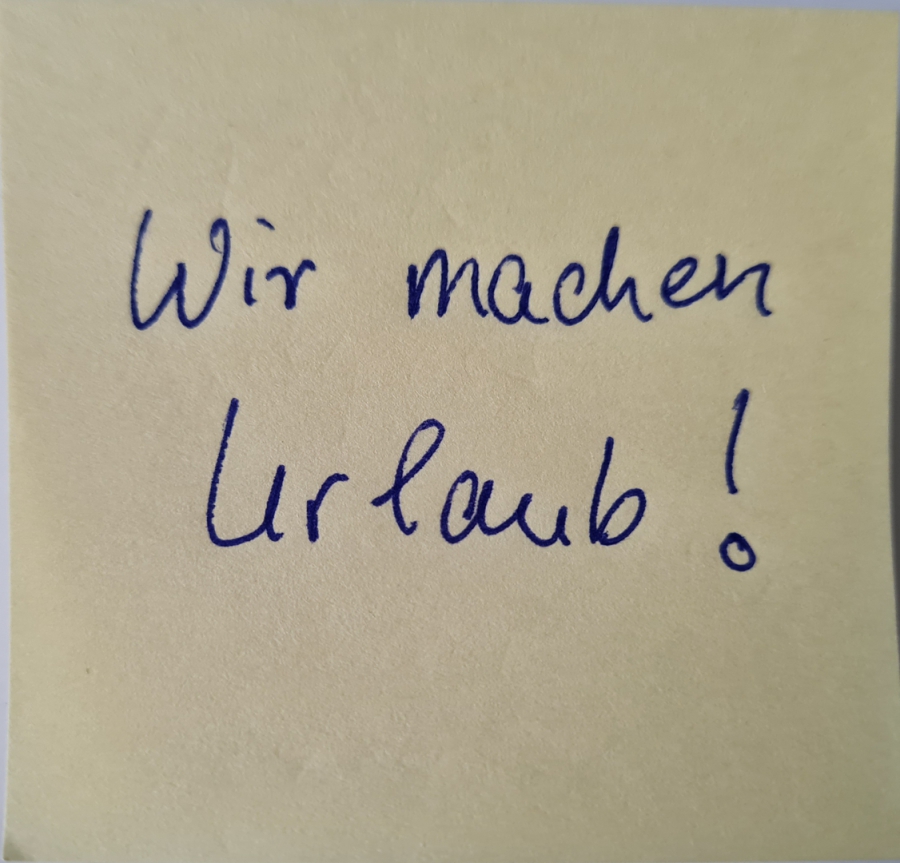 Wir machen
Urlaub!